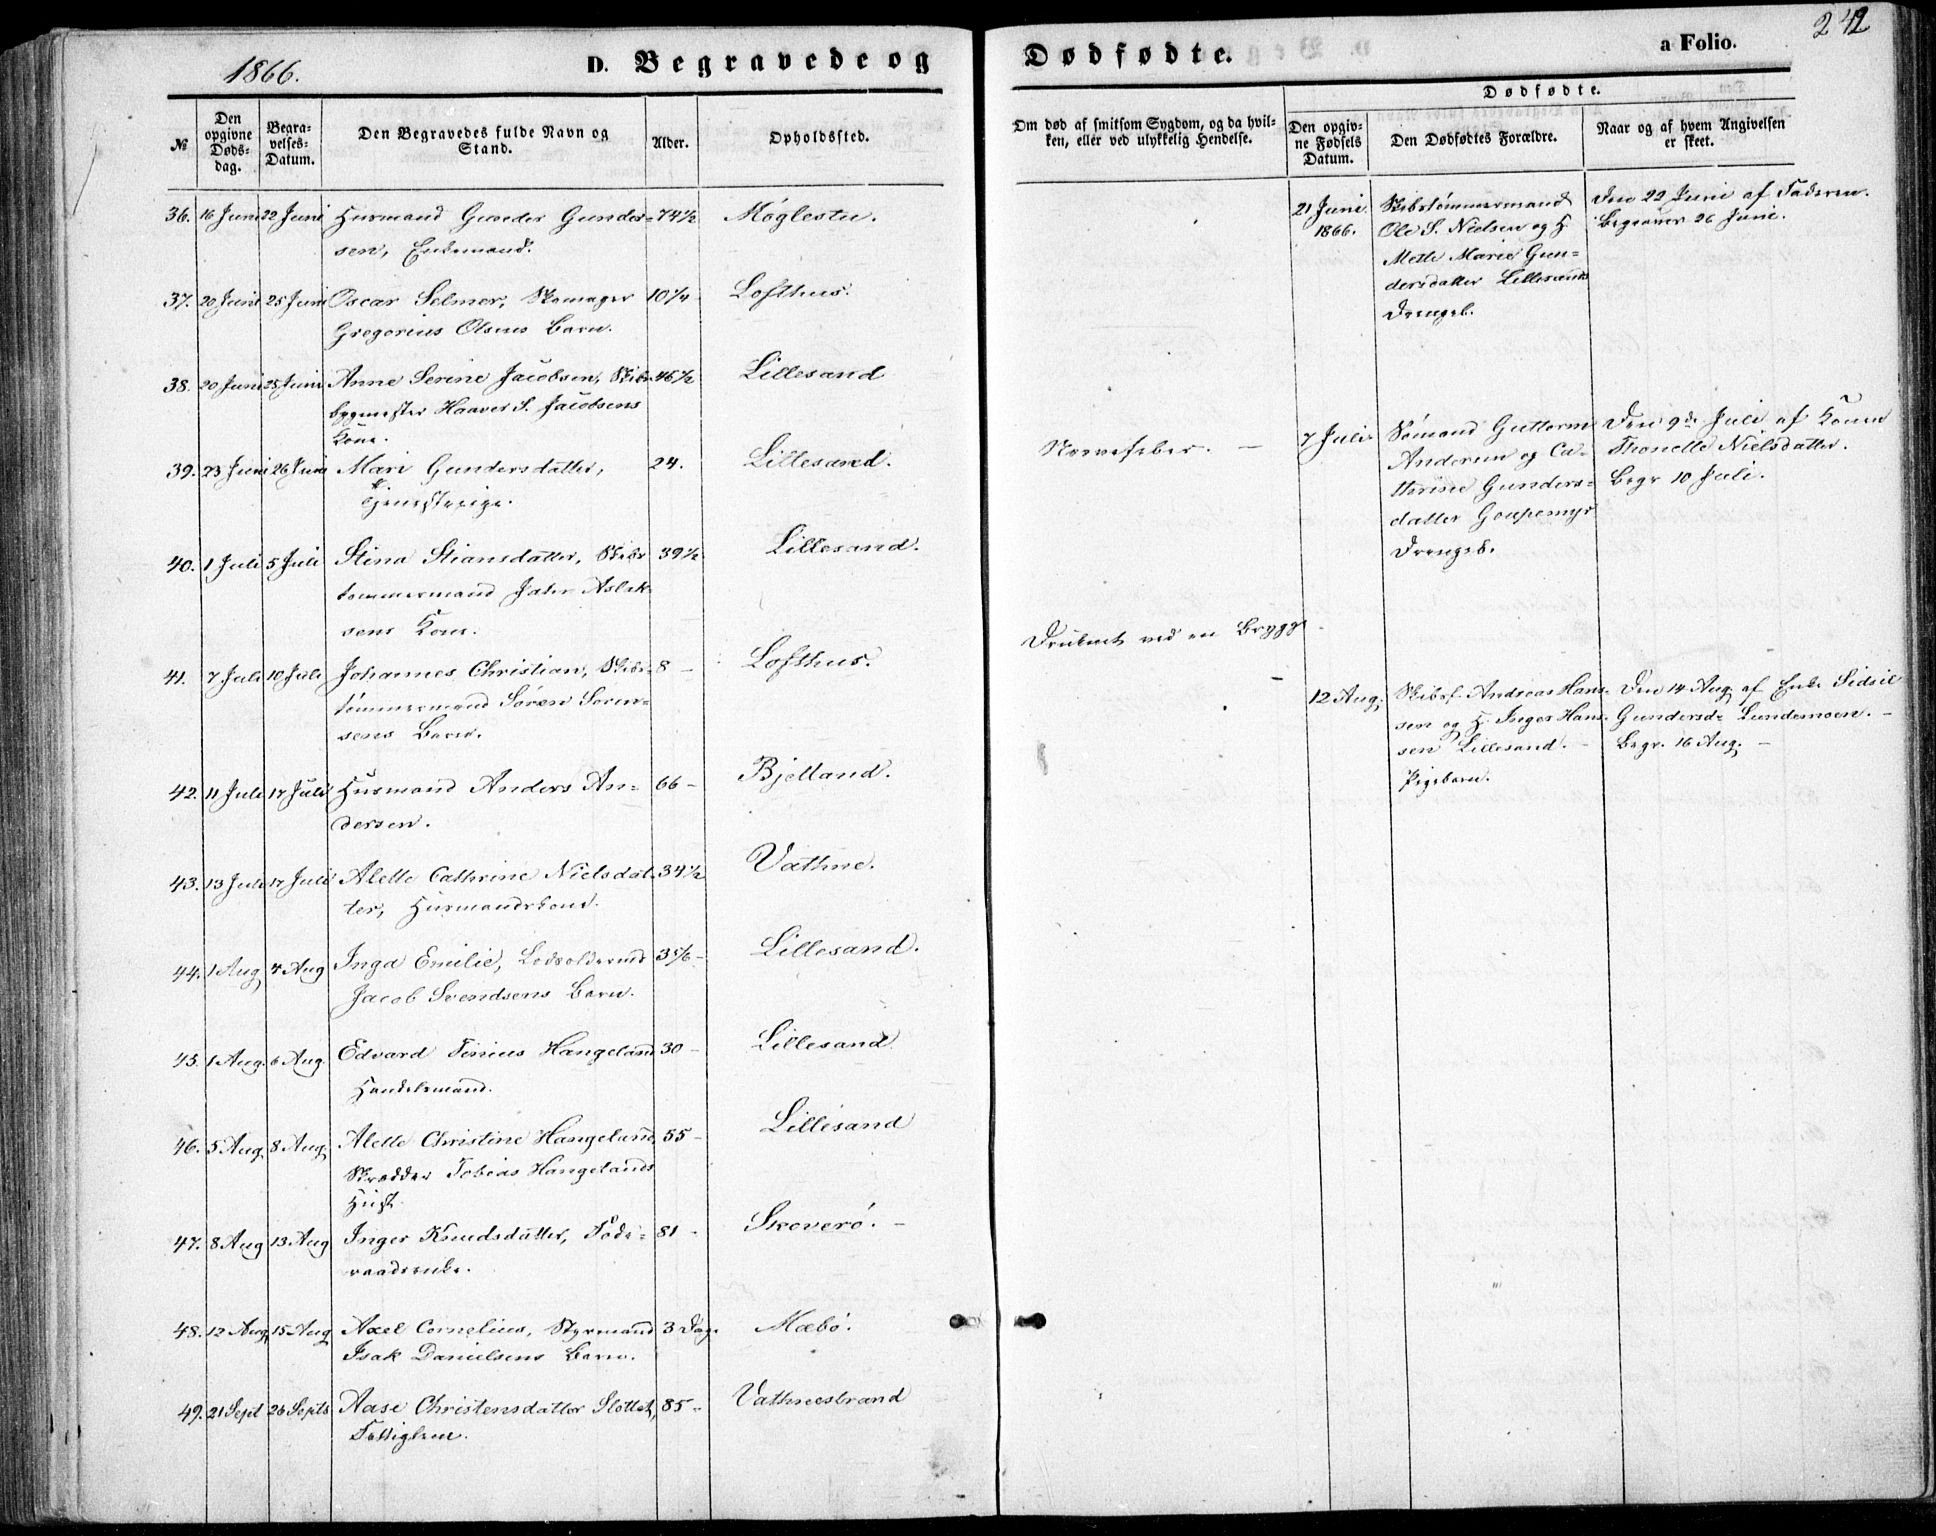 1866.
D. Begravede og
Dødfødte.
a Folio.
242
№
Den opgivne Døds-dag.
Begra-velses-Datum.
Den Begravedes fulde Navn og Stand.
Alder.
Opholdssted.
Om død af smitsom Sygdom, og da hvil-
ken, eller ved ulykkelig Hendelse.
Dødfødte.
Den opgiv-
ne Fødsels
Datum.
Den Dødfødtes Forældre.
Naar og af hvem Angivelsen
er skeet.
36. 16 Juni 22 Juni Husmand Gunder Gunder- 74½ Møglestu.
sen, Enkemand.
37. 20 Juni 25 Juni Oscar Selmer, Skomager 10¼ Lofthus.
Gregorius Olsens Barn.
38. 20 Juni 25 Juni Anne Serine Jacobsen, Skibs- 46½ Lillesand
bygmester Haaver S. Jacobsens
Kone.
39. 23 Juni 26 Juni Mari Gundersdatter, 24. Lillesand. Nervefeber. —
Tjenestepige.
40. 1 Juli 5 Juli Stina Stiansdatter, Skibs 39½ Lillesand.
tømmermand Aslak-
sens Kone.
41. 7 Juli 10 Juli Johannes Christian, Skibs- 8 — Lofthus. Druknet ved en Brygge
tømmermand Søren Søren-
sens Barn.
42. 11 Juli 17 Juli Husmand Anders An- 66 - Bjelland.
dersen.
43. 13 Juli 17 Juli Alette Cathrine Nielsdat- 34½ Vathne.
ter, Husmandskone.
44. 1 Aug 4 Aug Inga Emilie, Lodsoldermd 3 5/6 - Lillesand.
Jacob Svendsens Barn.
45. 1 Aug. 6 Aug. Edvard Tinius Hangeland 30 - Lillesand
Handelsmand.
46. 5 Aug 8 Aug. Alette Christine Hangeland, 55 - Lillesand
Skrædder Tobias Hangelands
Hust.
47. 8 Aug 13 Aug Inger Knudsdatter, Føde- 81 - Skoverö. -
raadsenke.
48. 12 Aug 15 Aug Axel Cornelius, Styrmand 3 Dage Mæbö.
Isak Danielsens Barn.
49. 21 Sept 26 Septb Aase Christensdatter Slottet, 85 - Vathnestrand
Fattiglem.
21 Juni
1866.
Skibstømmermand
Ole S. Nielsen og H.
Mette Marie Gun-
dersdatter Lillesand
Drengeb.
Den 22 Juni af Faderen.
Begraven 26 Juni.
7 Juli
Sømand Guttorm
Andersen og Ca-
thrine Gunders-
datter Goupemyr
Drengeb.
Den 9de Juli af Konen
Thonette Nielsdatter.
Begr 10 Juli.
12 Aug.
Skibsf. Andreas Han-
sen og H. Inger Han-
sen Lillesand. -
Pigebarn.
Den 14 Aug. af Enke Sidsil
Gundersd. Lundemoen. -
Begr. 16 Aug. —